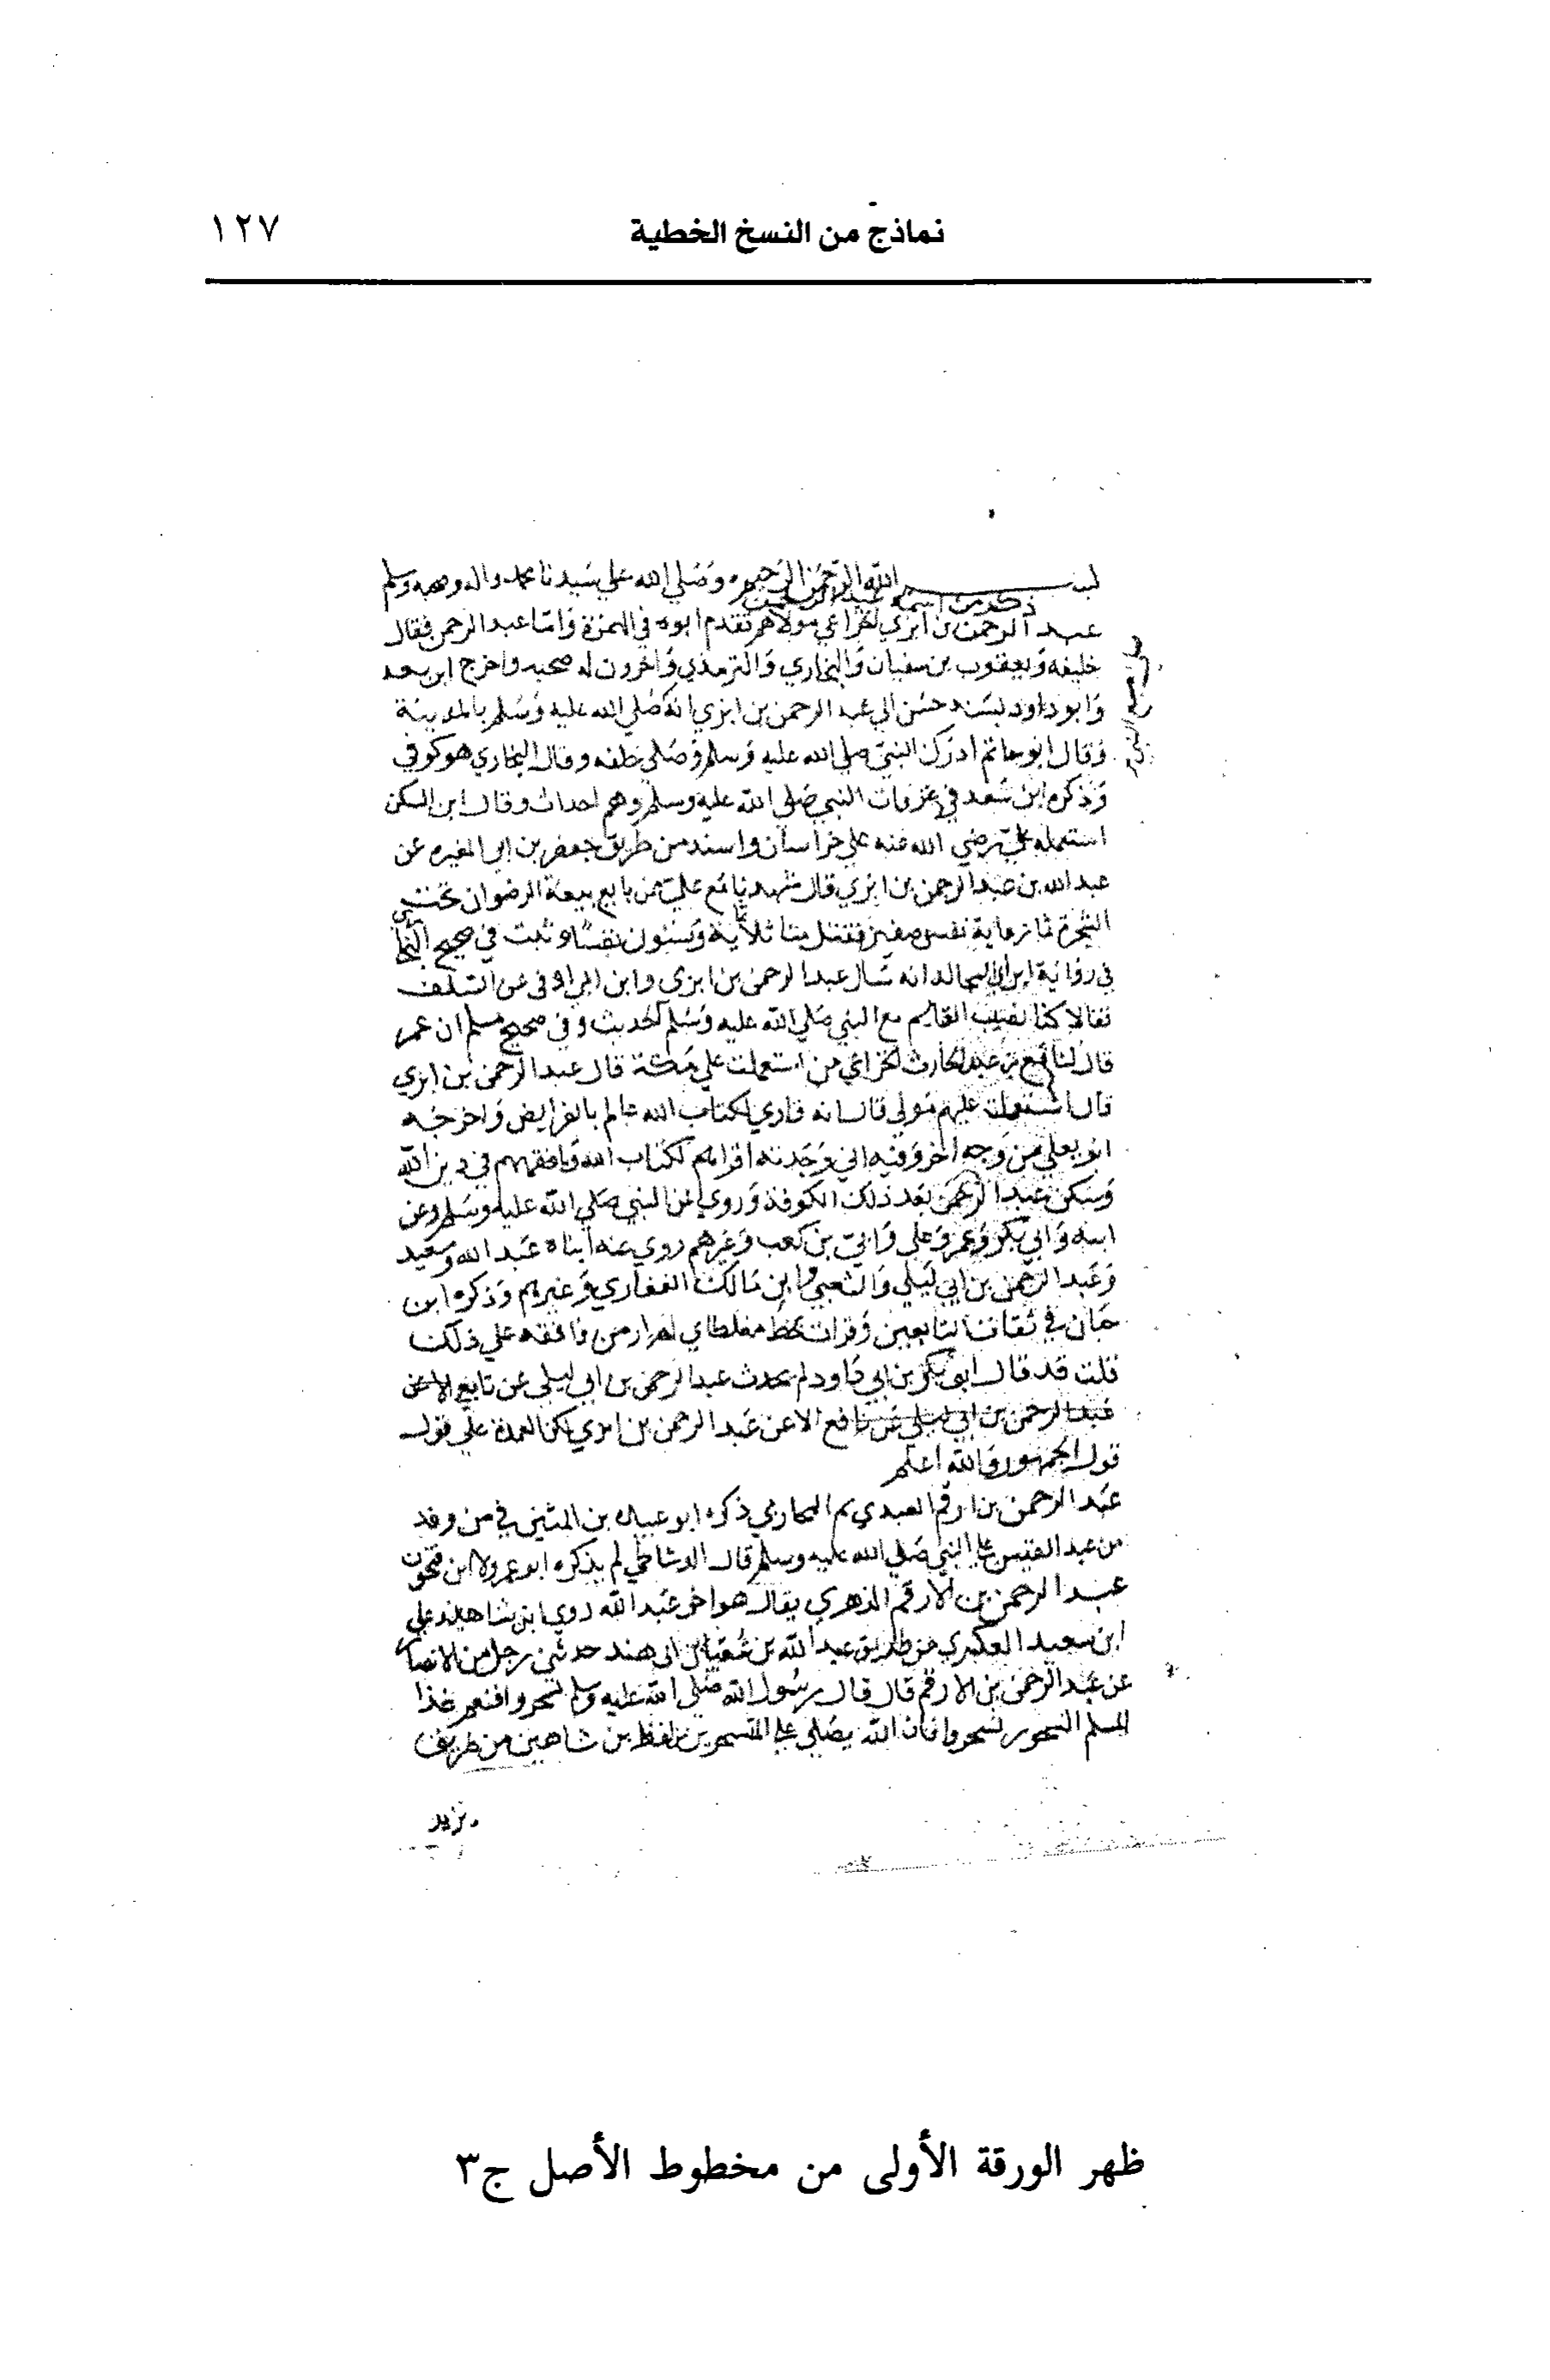 نماذج من النسخ الخطية
١٢٧
بسم الله الرحمن الرحيم وصلي الله علي سيدنا محمد واله وصحبه وسلم
ذكر من اسمه عبد الرحمن
عبد الرحمن بن ابزي الخزاعي مولاهم تقدم ابوه في الهمزة واما عبد الرحمن فقال
خليفه ويعقوب بن سفيان والبخاري والترمذي واخرون له صحبه واخرج ابن سعد
وابو داود بسند حسن الي عبد الرحمن بن ابزي انه صلي الله عليه وسلم بالمدينة
وقال ابو حاتم ادرك النبي صلي الله عليه وسلم وصلي خلفه وقال البخاري هو كوفي
وذكره ابن سعد في من مات النبي صلي الله عليه وسلم وهم احداث وقال ابن السكن
استعمله علي رضي الله عنه علي خراسان واسند من طريق جعفر بن ابي المغيره عن
عبد الله بن عبد الرحمن بن ابزي قال شهدنا مع علي من بايع بيعة الرضوان تحت
الشجرة ثمانماية نفس بصفين فقتل منا ثلاثماية وستون نفسا وثبت في صحيح البخاري
في رواية ابن ابي المجالد انه سال عبد الرحمن بن ابزي وابن ابي اوفي عن السلف
فقالا كنا نصيب الغنايم مع النبي صلي الله عليه وسلم الحديث وفي صحيح مسلم ان عمر
قال لنافع بن عبد الحارث الخزاعي من استعملت علي مكة قال عبد الرحمن بن ابزي
قال استعملت عليهم مولي قال انه قاري لكتاب الله عالم بالفرايض واخرجه
ابو يعلي من وجه اخر وفيه اني وجدته اقراهم لكتاب الله وافقههم في دين الله
وسكن عبد الرحمن بعد ذلك الكوفة وروي عن النبي صلي الله عليه وسلم وعن
ابيه وابي بكر وعمر وعلي وابي بن كعب وغيرهم روي عنه ابناه عبد الله وسعيد
وعبد الرحمن بن ابي ليلي والشعبي وابن مالك الغفاري وغيرهم وذكره ابن
حبان في ثقات التابعين وقرات بخط مغلطاي لم ار من وافقه علي ذلك
قلت قد قال ابو بكر بن ابي داود لم يحدث عبد الرحمن بن ابي ليلي عن تابعي الا عن
عبد الرحمن بن ابزي لكن العمدة علي قول
قول الجمهور والله اعلم
عبد الرحمن بن ارقم العبدي ثم المحاربي ذكره ابو عبيدة بن المثني في من وفد
من عبد القيس علي النبي صلي الله عليه وسلم قال الرشاطي لم يذكره ابو عمر ولا ابن فتحون
عبد الرحمن بن الارقم الزهري يقال هو اخو عبد الله روي ابن شاهين
ابن سعيد العسكري من طريق عبد الله بن سعيد بن ابي هند حدثني رجل من الانصار
عن عبد الرحمن بن الارقم قال قال رسول الله صلي الله عليه وسلم تسحروا فنعم غذا
المسلم السحور تسحروا فان الله يصلي علي المتسحرين لفظ بن شاهين من طريق
يزيد
ظهر الورقة الأولى من مخطوط الأصل ج٣